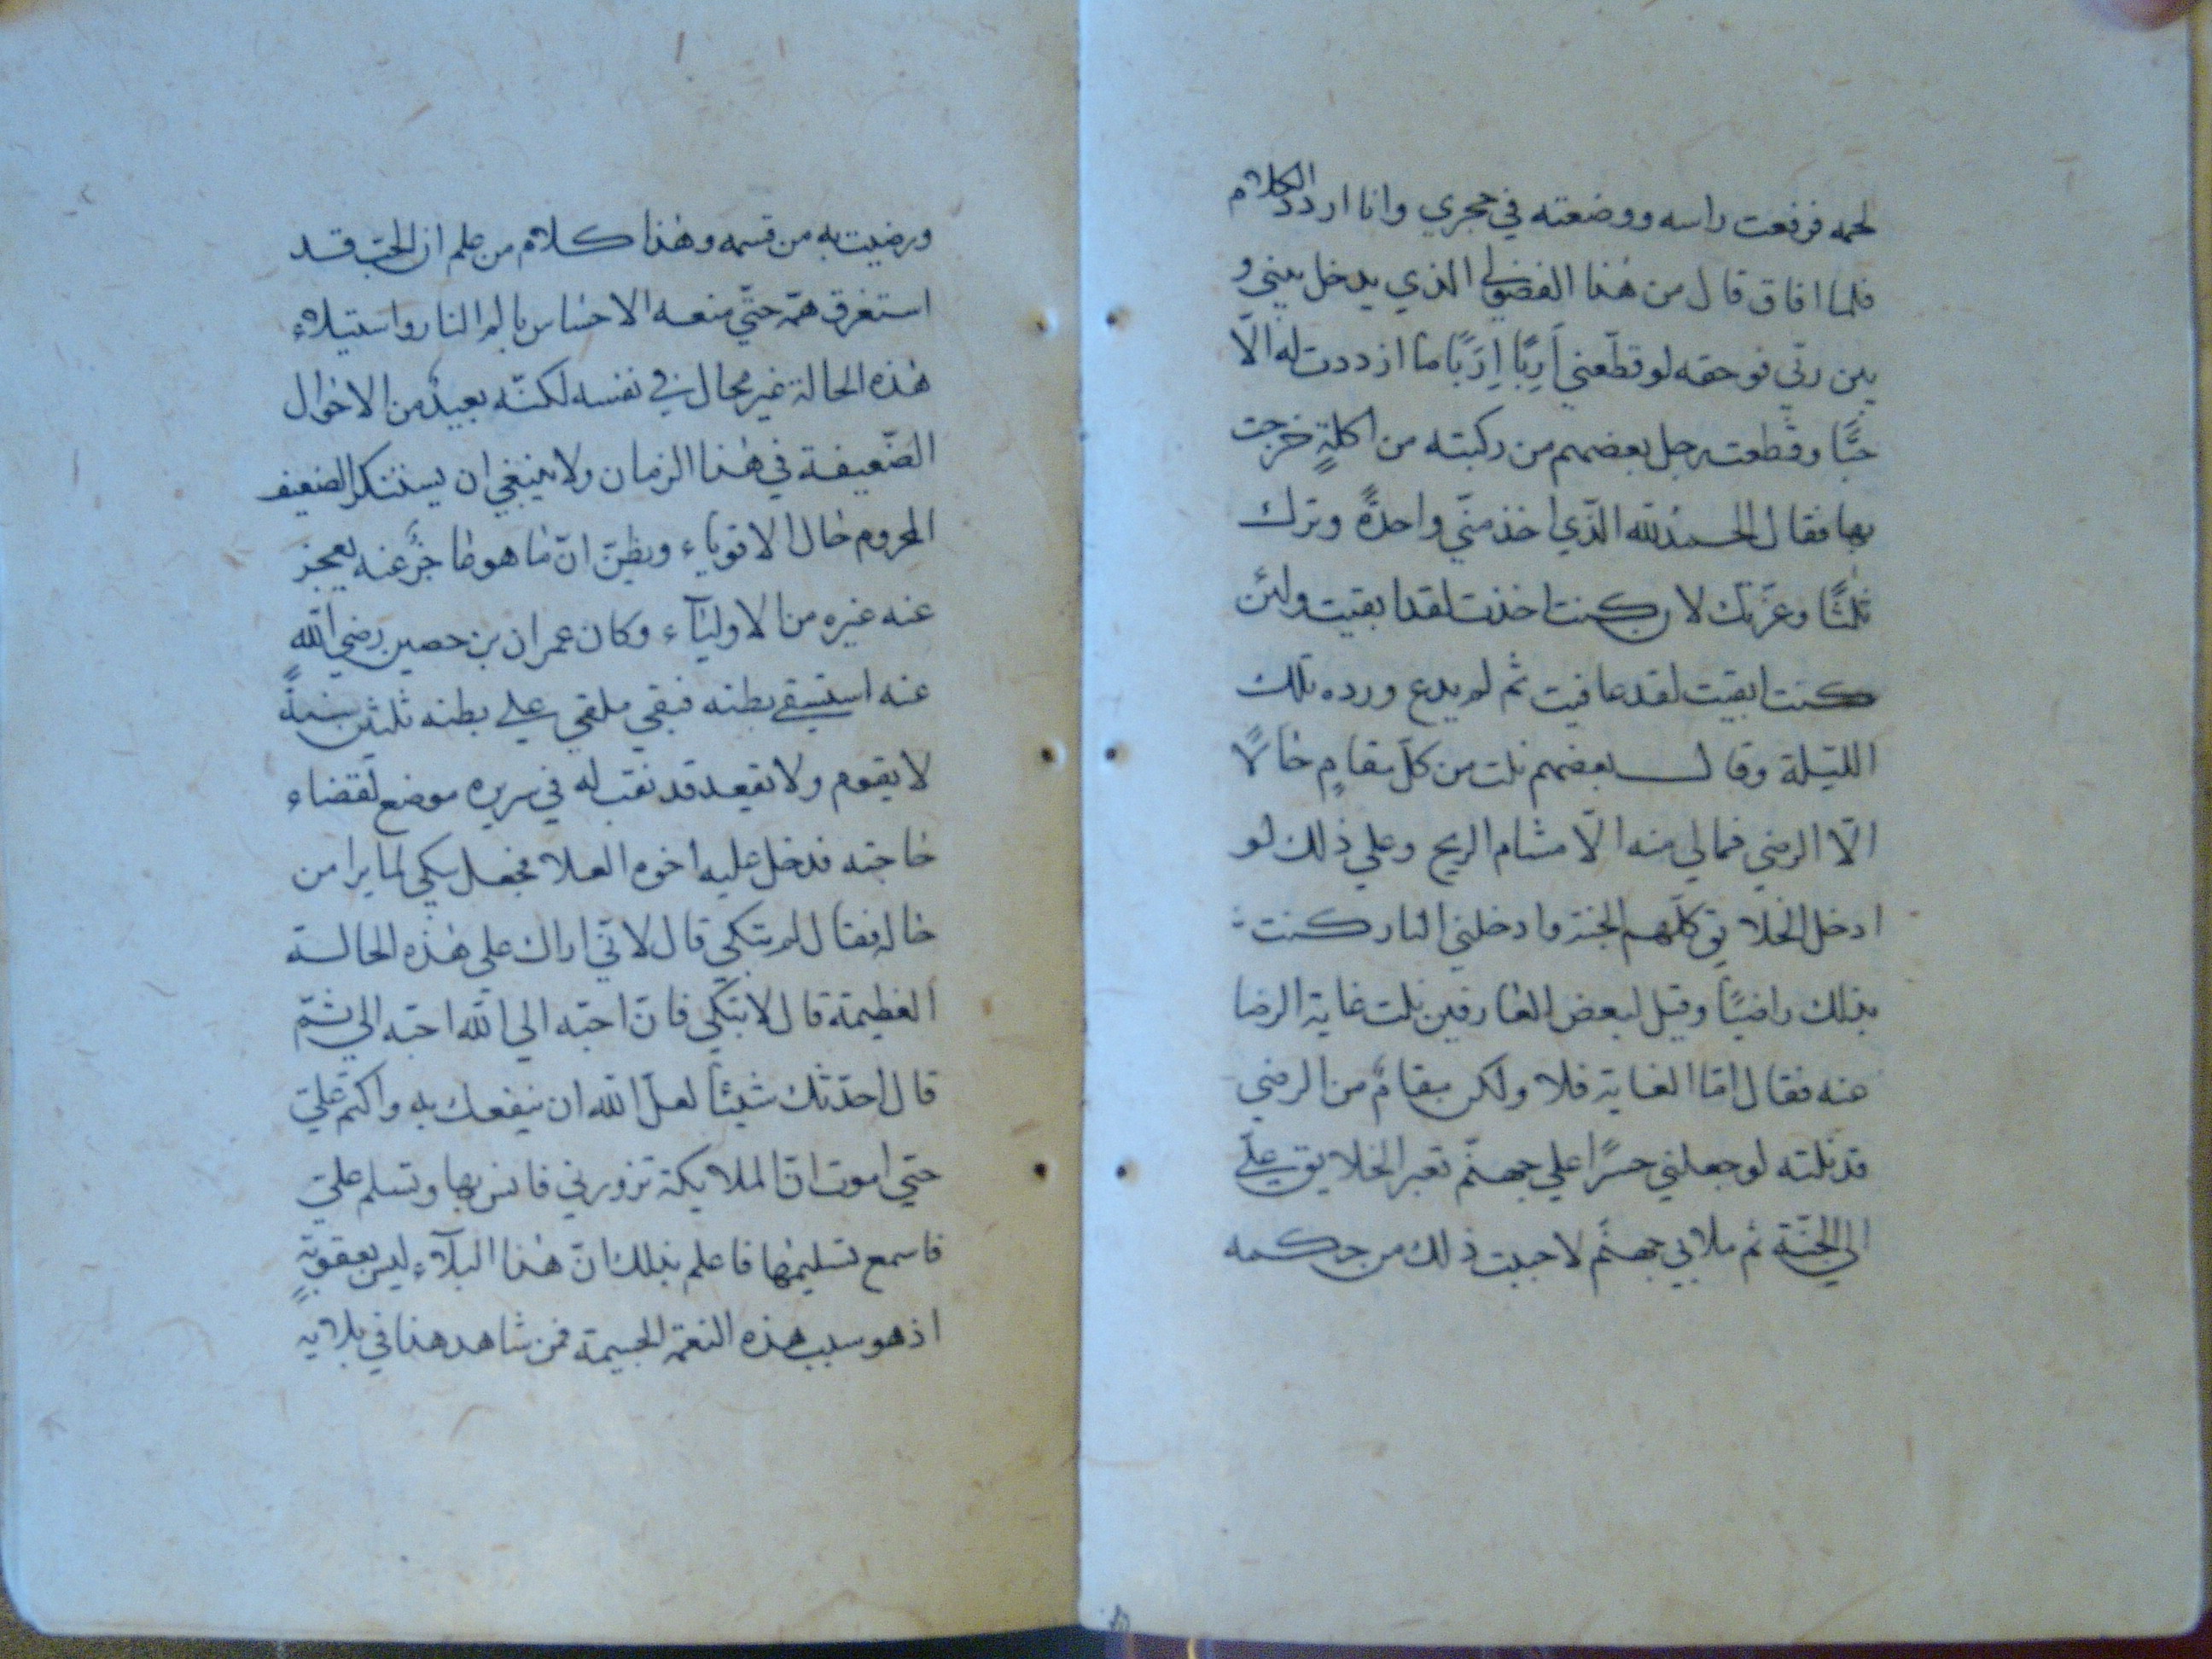 لحمه فرفعت راسه ووضعته في حجري وانا اردد الكلام
فلما افاق قال من هذا الفضولي الذي يدخل بيني و
بين ربّي فوحقه لو قطّعني اَرِبًا اِرَبًا ما ازددت له الّا
حبًّا وقطعت رجل بعضهم من ركبته من اكلةٍ خرجت
بها فقال الحمد لله الّذي اخذ منّي واحدةً وترك
ثلثًا وعزّتك لان كنت اخذت لقد ابقيت ولئن
كنت ابقيت لقد عافيت ثم لم يدع ورده تلك
الليلة وقال بعضهم نلت من كلّ مقامٍ حالًا
الّا الرضي فمالي منه الّا مشام الريح وعلي ذلك لو
ادخل الخلايق كلّهم الجنة وادخلني النار كنت
بذلك راضيًا وقيل لبعض العارفين نلت غاية الرضا
عنه فقال امّا الغاية فلا ولكن مقامٌ من الرضي
قد نلته لو جعلني جسرًا علي جهنّم تعبر الخلايق عليّ
الي الجنّة ثم ملا بي جهنّم لاحببت ذلك من حكمه
ورضيت به من قسمه وهذا كلام من علم ان الحبّ قد
استغرق همّه حتّي منعه الاحساس بالم النار واستيلاء
هذه الحالة غير محال في نفسه لكنّه بعيدٌ من الاحوال
الضّعيفة في هذا الزمان ولا ينبغي ان يستنكر الضعيف
المحروم حال الاقوياء ويظنّ انّ ما هو عاجزٌ عنه يعجز
عنه غيره من الاوليآء وكان عمران بن حصين رضي الله
عنه استسقي بطنه فبقي ملقي علي بطنه ثلثين سنةً
لا يقوم ولا يقعد قد نقب له في سريره موضع لقضاء
حاجته فدخل عليه اخوه العلا فجعل يبكي لما يرا من
حاله فقال لم تبكي قال لانّي اراك علي هذه الحالة
العظيمة قال لا تبكي فانّ احبّه الي الله احبّه اليّ ثمّ
قال احدّثك شيئاً لعلّ الله ان ينفعك به واكتم عليّ
حتي اموت انّ الملايكة تزورني فانس بها وتسلم عليّ
فاسمع تسليمها فاعلم بذلك انّ هذا البلآء ليس بعقوبةٍ
اذ هو سبب هذه النعمة الجسيمة فمن شاهد هذا في بلايه